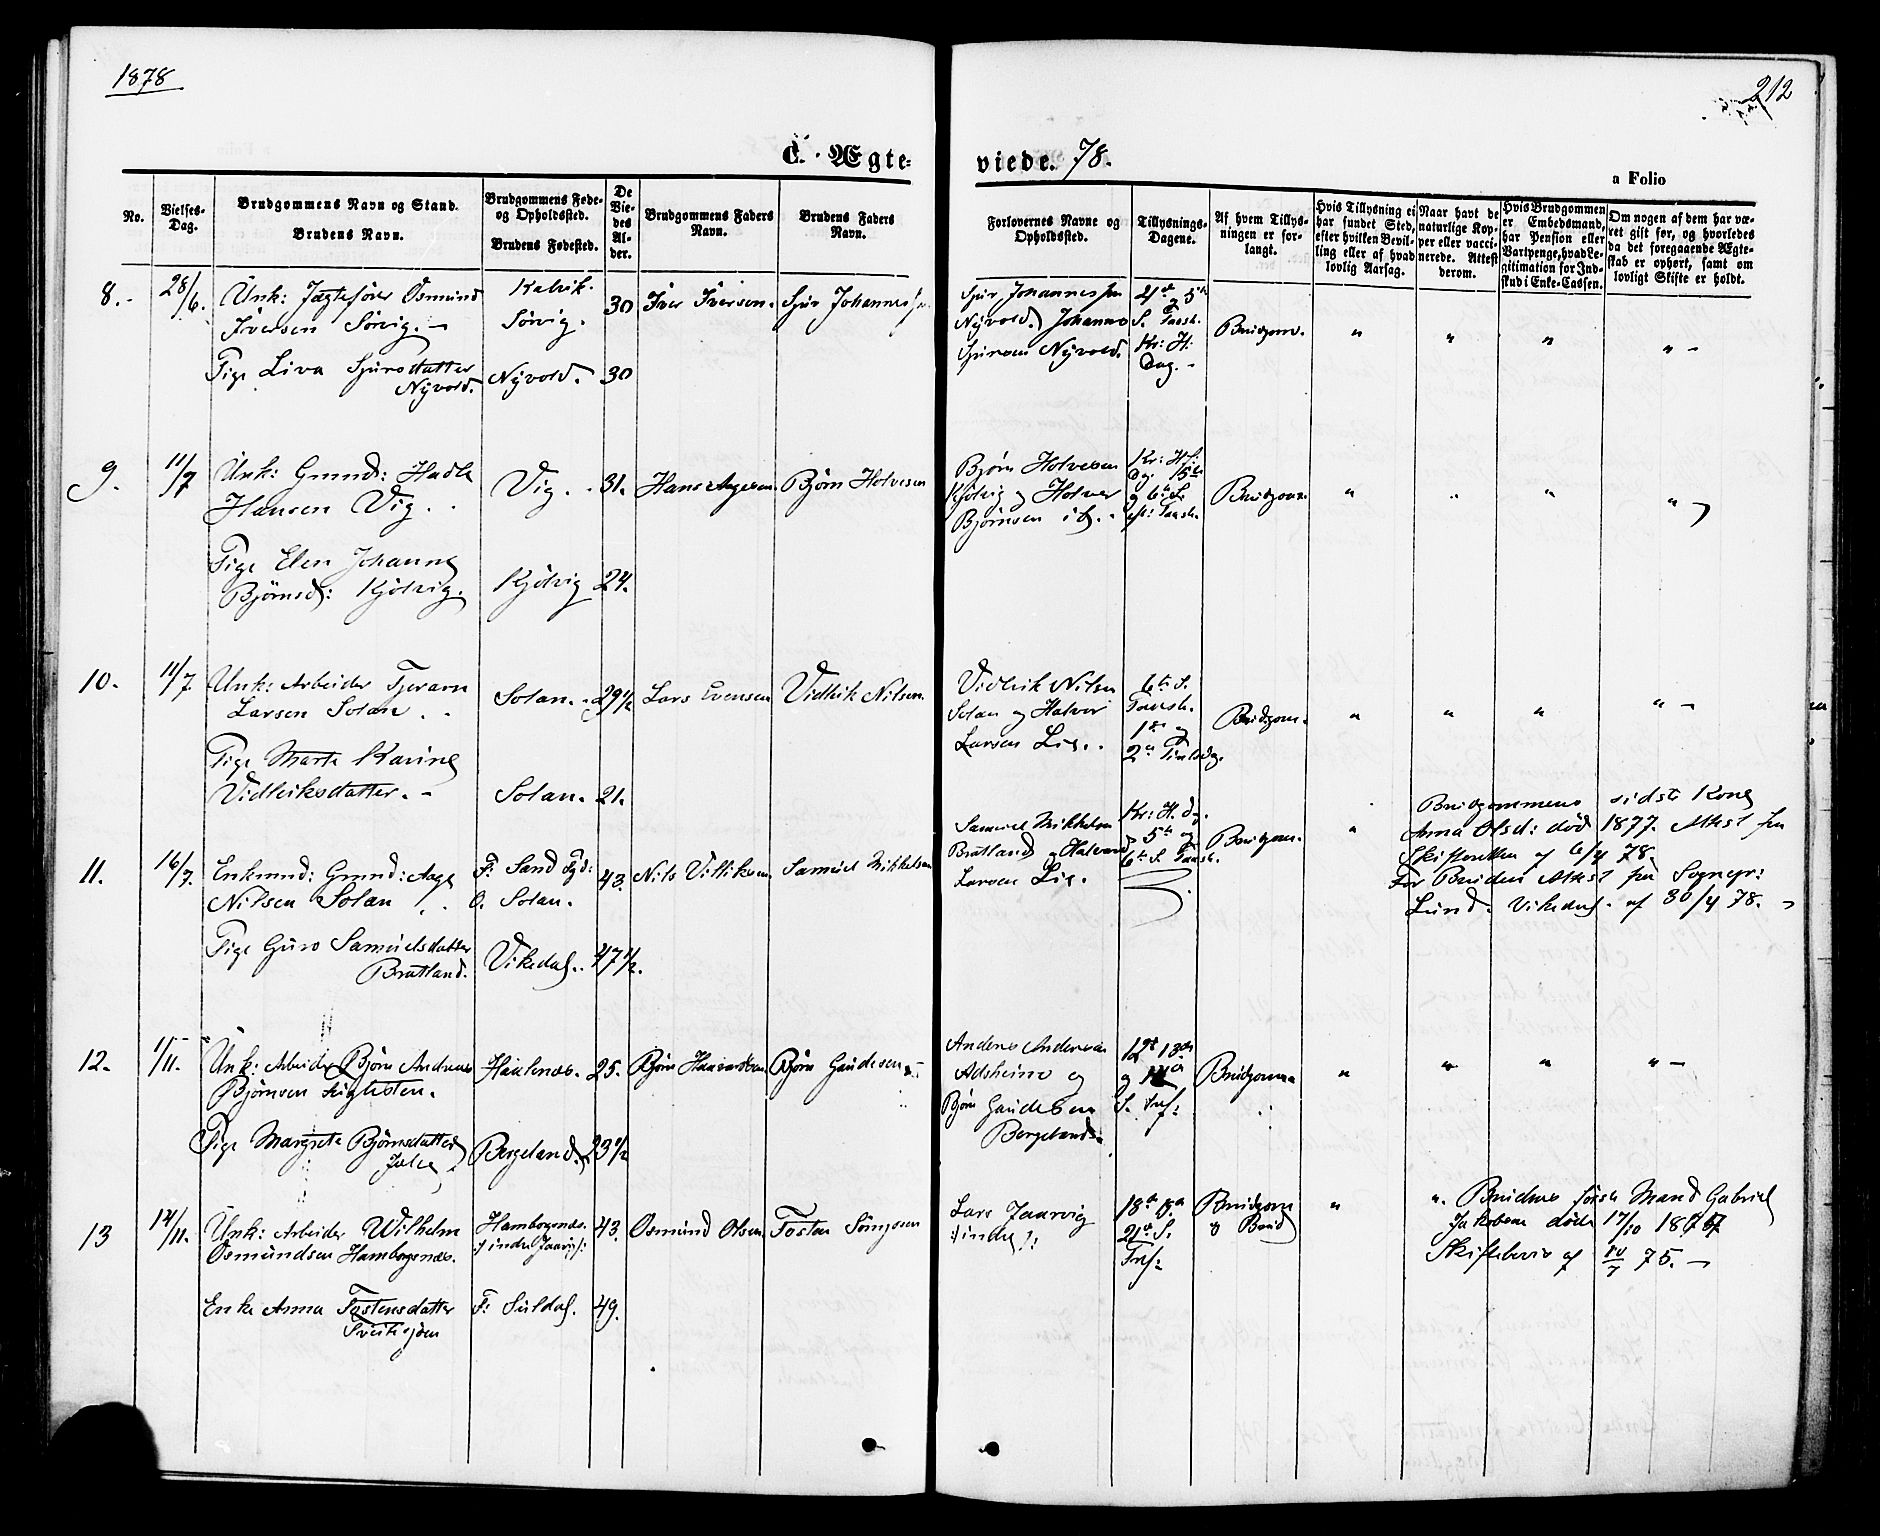 1878
212
C. Ægte-
viede. 78.
a Folio
No.
Vielses-
Dag.
Brudgommens Navn og Stand.
Brudens Navn.
Brudgommens Føde-
og Opholdssted.
Brudens Fødested.
De
Vie-
des
Al-
der.
Brudgommens Faders
Navn.
Brudens Faders
Navn.
Forlovernes Navne og
Opholdssted.
Tillysnings-
Dagene.
Af hvem Tillys-
ningen er for-
langt.
Hvis Tillysning ei
har fundet Sted,
efter hvilken Bevil-
ling eller af hvad
lovlig Aarsag.
Naar havt de
naturlige Kop-
per eller vacci-
nerede. Attest
derom.
Hvis Brudgommen
er Embedsmand,
har Pension eller
Vartpenge, hvad Le-
gitimation for Ind-
skud i Enke-Cassen.
Om nogen af dem har væ-
ret gift før, og hvorledes
da det foregaaende Ægte-
skab er ophørt, samt om
lovligt Skifte er holdt.
8. -
28/6.
Unk: Jægtefører Osmund
Iversen Sörvig. -
Pige Liva Sjursdatter
Nyvold.
Sörvig.
Nyvold.
30
30
Iver Iversen.
Sjur Johannessen
Sjur Johannessen
Nyvold. Johannes
Sjursen Nyvold.
4de og 5te
S. Paask.
Kr: H:
Dag. -
Brudgom.
" " " " -
9.
11/7
Unk: Gmnd: Hadle
Hansen Vig. .
Pige Elen Johanne
Björnsd: Kjölvig.
Vig. .
Kjölvig
31.
24.
Hans Aagesen
Björn Holvesen
Björn Holvesen
Kjölvig og Holver
Björnsen ib. -
Kr: Hf:
Dg. 5te
og 6te S.
eft: Paask.
Brudgom.
" " " "
10.
11/7.
Unk: Arbeider Tjeran
Larsen Solan. -
Pige Marta Karine
Vidleiksdatter. -
Solan. -
Solan.
29 1/2
21.
Lars Evensen
Vidleik Nilsen.
Vidleik Nilsen
Solan og Halvor
Larsen Lie. .
6te S.
Paask.
1ste og
2en Pintsdg.
Brudgom.
" " " " -
11.
16/7.
Enkemd: Gmnd: Aage
Nilsen Solan
Pige Guro Samuelsdatter
Bratland.
F: Sand Sgd:
O. Solan.
Vikedal. .
43.
47 1/2.
Nils Villiksen
Samuel Mikkelsen
Samuel Mikkelsen
Bratland og Halvard
Larsen Lie.
Kr: H. dg.
5te og
6te S. Paask.
Brudgom.
"
Brudgommens sidste Kone
Anna Olsd: död 1877. Attest fra
Skifteretten af 6/4 78.
For Bruden Attest fra Sognepr:
Lund. Vikedal. af 30/4 78. -
12.
1/11.
Unk: Arbeider Björn Andreas
Björnsen
Pige Margrete Björnsdatter
Bergeland.
25.
23 1/2
Björn Gaudesen
Anders Andersen
Adsheim og
Björn Gaudesen
Bergeland.
12te 13de
og 14de
S. Tref:
Brudgom
" " " " -
13
14/11.
Unk: Arbeider Wilhelm
Osmundsen Hamborgenæs.
Enke Anna Tostensdatter
Hamborgenæs.
/: indre Jaarvig :/
F: Suldal.
43.
49.
Osmund Olsen
Lars Jaarvig
/: indre :/
18de
21de S.
Tref:
Brudgom
& Brud
"
". Brudens förste Mand Gabriel
Jakobsen döde 17/10
Skiftebrev af 75. -